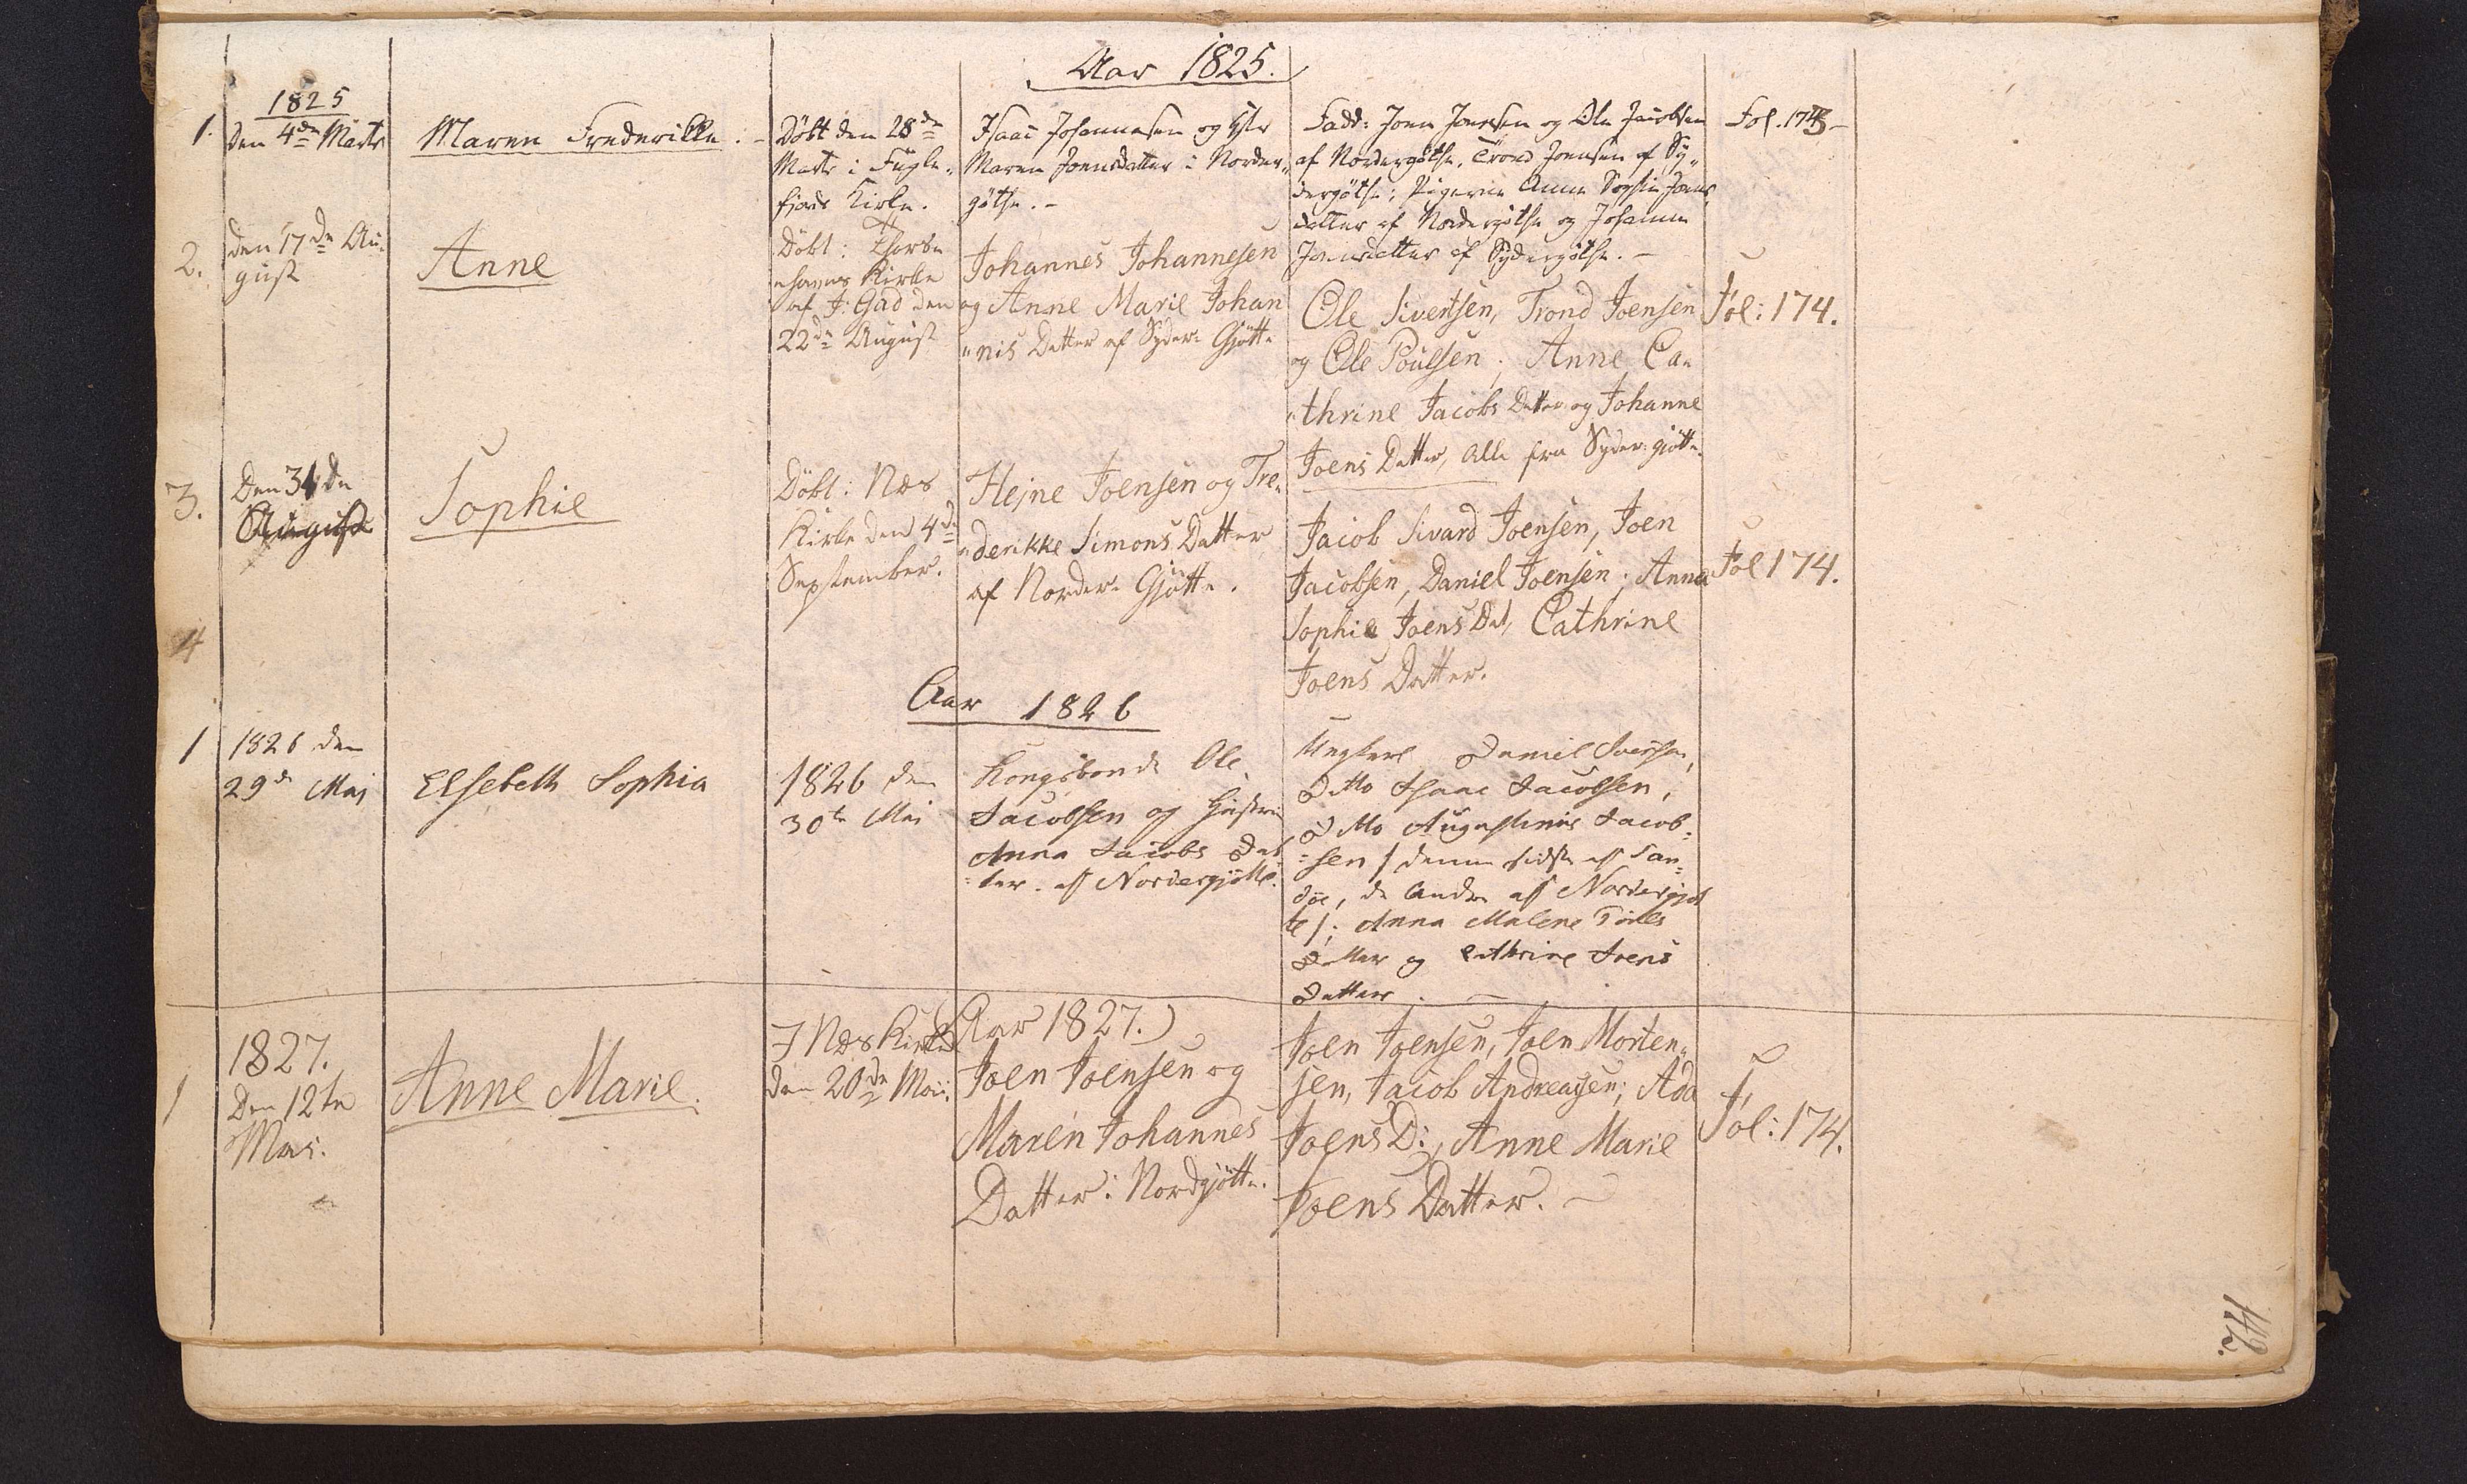 Aar 1825.
1.
1825
den 4de Marts
Maren Frederikke. -
Døbt den 28de
Marts i Fugle-
fjords Kirke.
Isaac Johannesen og Hstr
Maren Joensdatter i Norder-
gøthe. -
Fadd: Joen Joensen og Ole Jacobsen
af Nordergøthe, Trond Joensen af Sy-
dergøthe; Pigerne Anne Sophie Joens-
datter af Nordergøthe og Johanne
Joensdatter af Sydergøthe. -
Fol. 173-
2.
den 17de Au-
gust
Anne
Døbt: Thors
-havns Kirke
af J: Gad den
22de August
Johannes Johannesen
og Anne Marie Johan
"nis Datter af Syder- Gjøtte
Ole Sivertsen, Trond Joensen
og Ole Poulsen; Anne Ca-
"thrine Jacobs Datter og Johanne
Joens Datter, alle fra Syder-gjøtte.
Fol: 174.
3.
Den 31de
August
Sophie
Døbt: Næs
Kirke den 4de
September.
Hejne Joensen og Fre-
"derikke Simons Datter
af Norder- Gjøtte.
Jacob Sivard Joensen, Joen
Jacobsen, Daniel Joensen; Anna
Sophie Joens Dat, Cathrine
Joens Datter.
Fol 174.
4
Aar 1826
1
1826 den
29de Maj
Elsebeth Sophia
1826 den
30te Mai
Kongsbonde Ole
Jacobsen og Hustru
Anna Jacobs Dat
=ter. af Nordergjøtte.
Ungkarl Daniel
Ditto Isaac Jacobsen,
Ditto Augustinus Jacob=
=sen / denne sidste af San=
døe, de andre af Nordergjøt
te /; Anna Malene
Datter og Cathrine Joens
Datter. -
Aar 1827.)
1
1827.
Den 12te
Mai.
Anne Marie.
I Næs Kirke
den 20de Mai:
Joen Joensen og
Maren Johannes
Datter i Nordgjøtte.
Joen Joensen, Joen Morten-
sen, Jacob Andreasen; Ada
Joens D:, Anne Marie
Joens Datter. -
Fol: 174.
142.